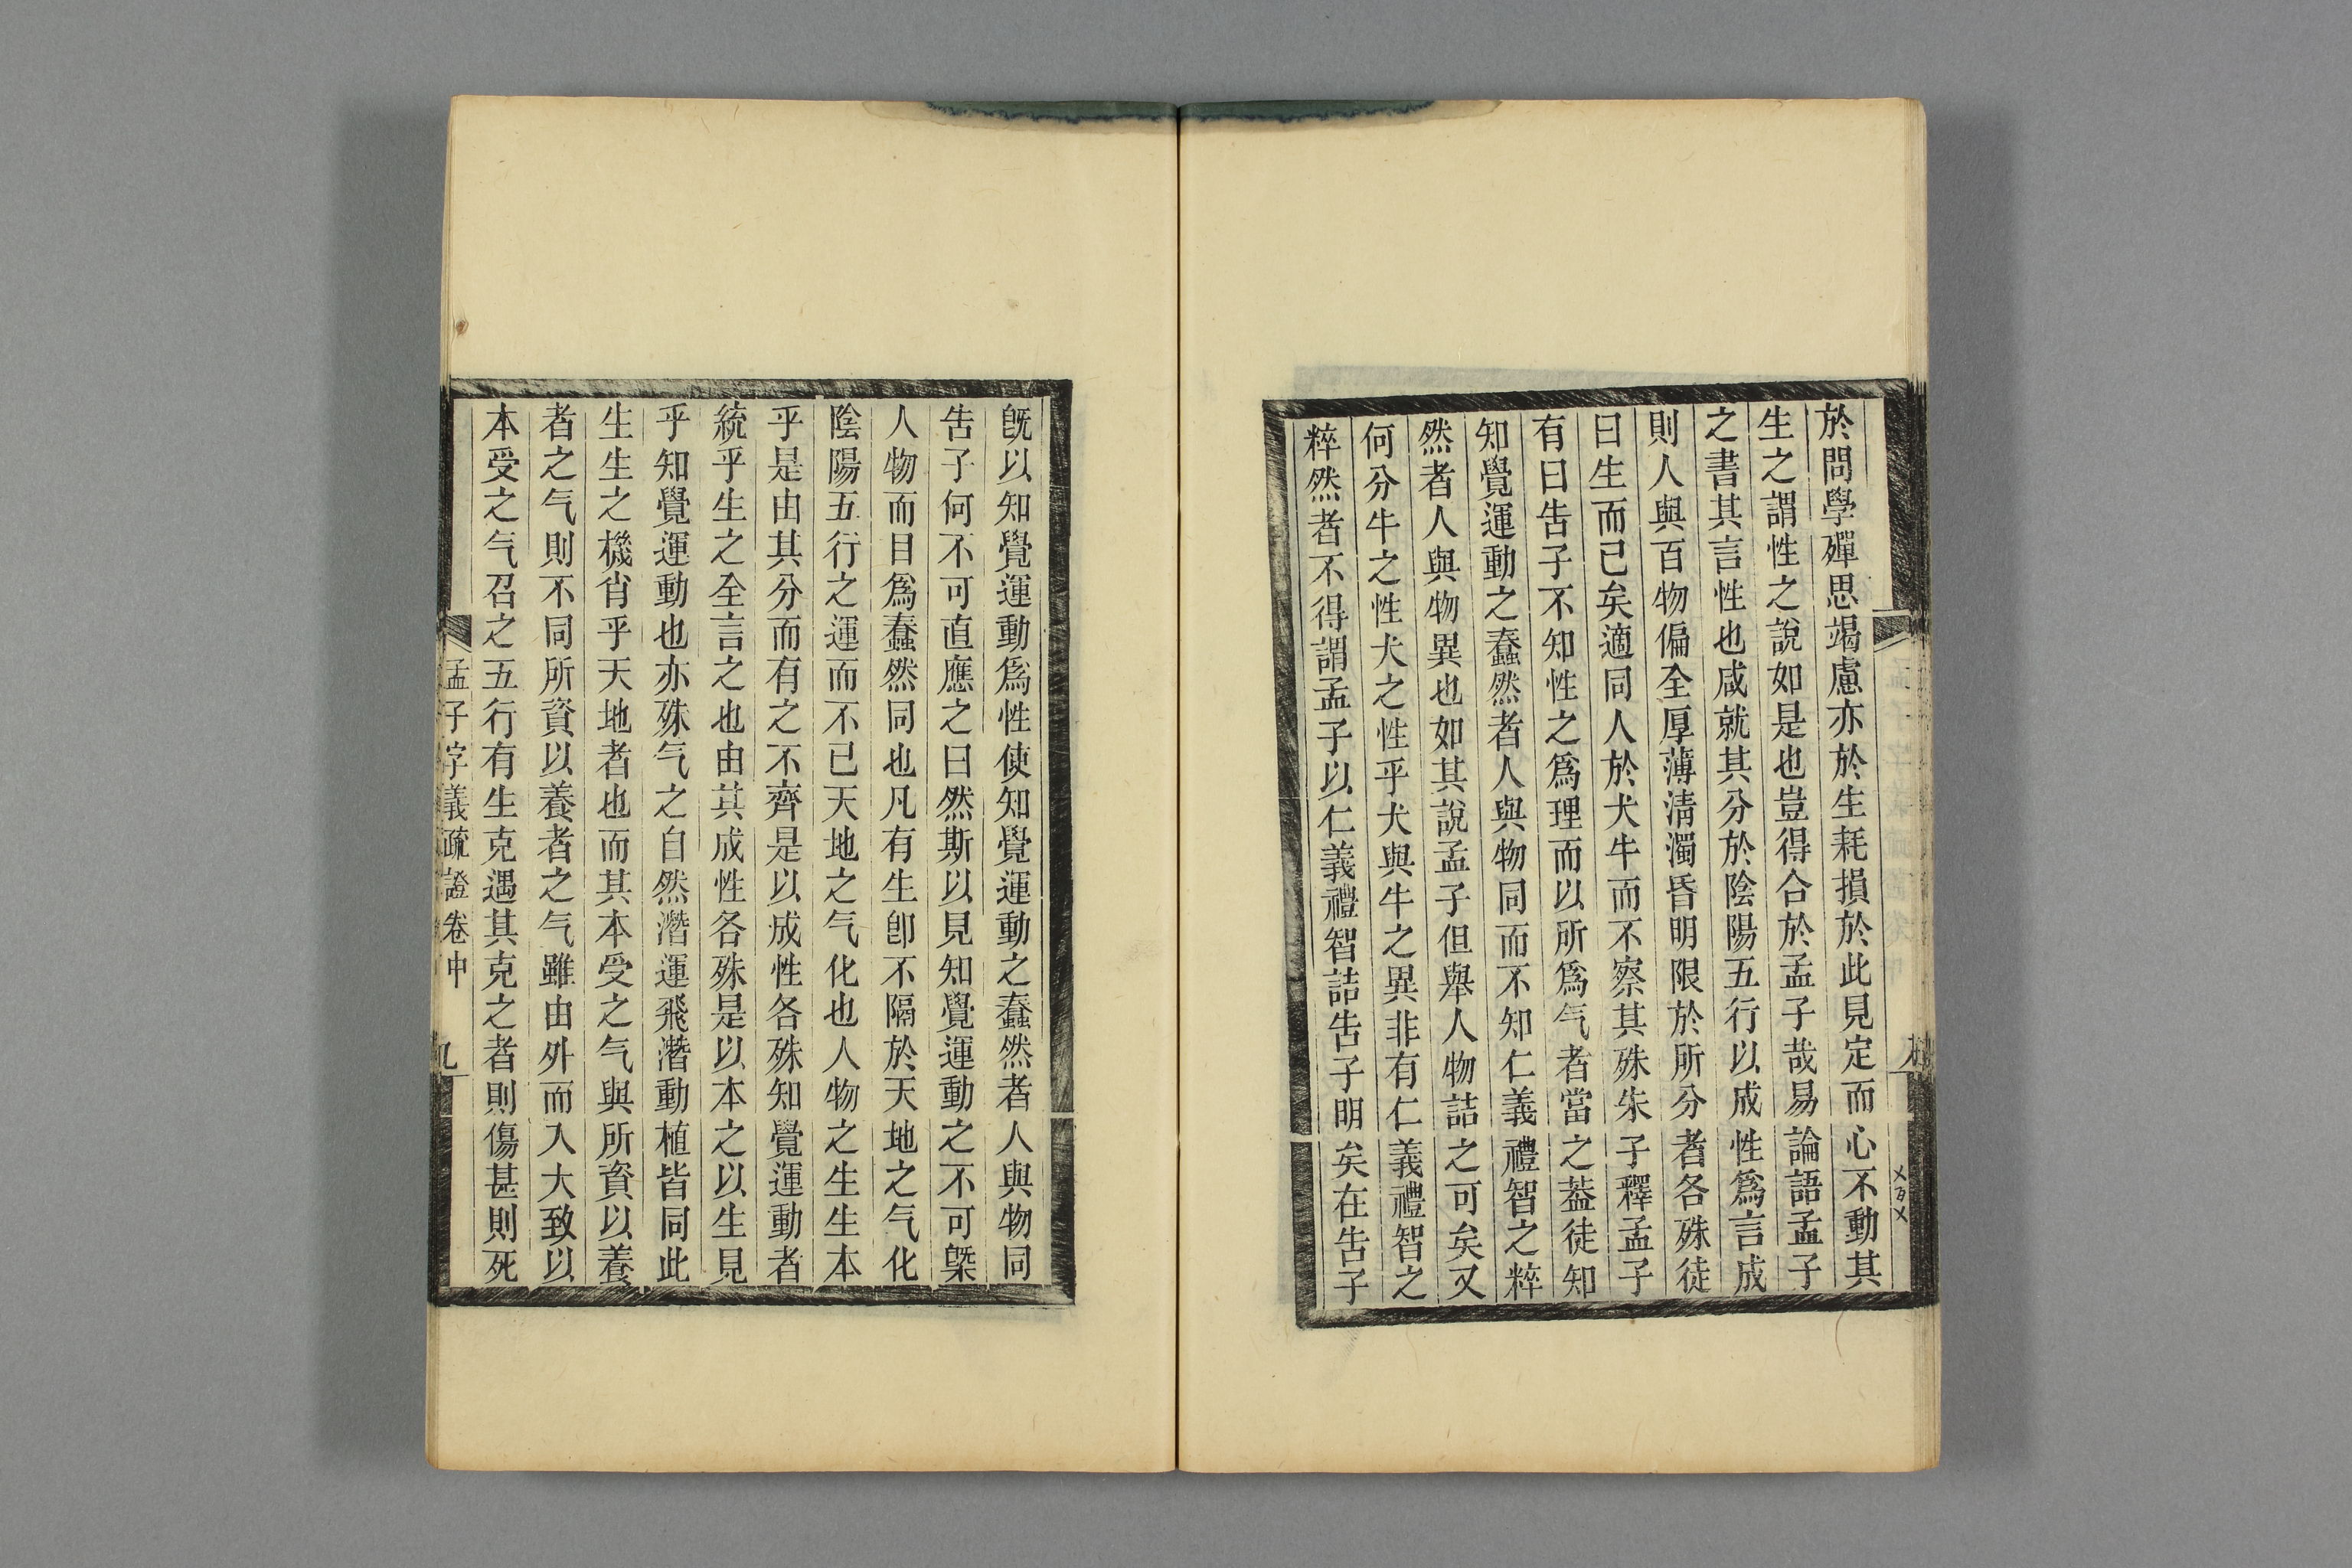 於問學殫思竭慮亦於生耗損於此見定而心不動其
生之謂性之說如是也豈得合於孟子哉易論語孟子
之書其言性也咸就其分於陰陽五行以成性爲言成
則人與百物偏全厚薄淸濁昏明限於所分者各殊徒
曰生而已矣適同人於犬牛而不察其殊朱子釋孟子
有曰告子不知性之爲理而以所爲气者當之葢徒知
知覺運動之蠢然者人與物同而不知仁義禮智之粹
然者人與物異也如其說孟子但舉人物詰之可矣又
何分牛之性犬之性乎犬與牛之異非有仁義禮智之
粹然者不得謂孟子以仁義禮智詰告子明矣在告子
旣以知覺運動爲性使知覺運動之蠢然者人與物同
告子何不可直應之曰然斯以見知覺運動之不可槩
人物而目爲蠢然同也凡有生卽不隔於天地之气化
陰陽五行之運而不已天地之气化也人物之生生本
乎是由其分而有之不齊是以成性各殊知覺運動者
統乎生之全言之也由其成性各殊是以本之以生見
乎知覺運動也亦殊气之自然潛運飛潛動植皆同此
生生之機肖乎天地者也而其本受之气與所資以養
者之气則不同所資以養者之气雖由外而入大致以
本受之气召之五行有生克遇其克之者則傷甚則死
孟子字義疏證卷中